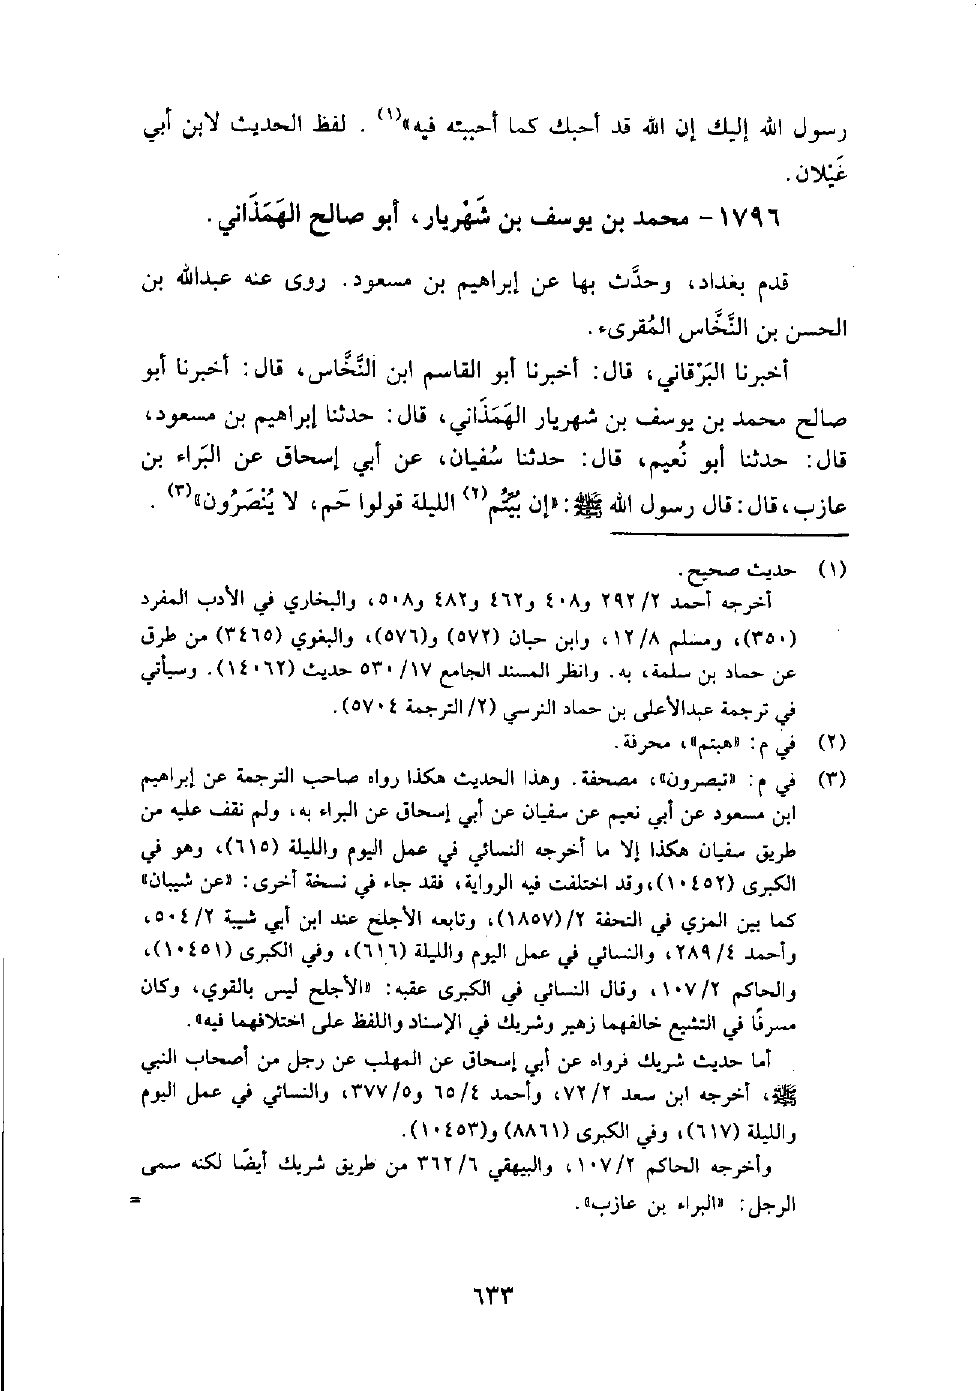 رسول الله إليك إن الله قد أحبك كما أحببته فيه»(١) . لفظ الحديث لابن أبي
غَيْلان.
١٧٩٦- محمد بن يوسف بن شَهْريار، أبو صالح الهَمَذَاني.
قدم بغداد، وحدَّث بها عن إبراهيم بن مسعود. روى عنه عبدالله بن
الحسن بن النَّخَّاس المُقرىء.
أخبرنا البَرْقاني، قال: أخبرنا أبو القاسم ابن النَّخَّاس، قال: أخبرنا أبو
صالح محمد بن يوسف بن شهريار الهَمَذَاني، قال: حدثنا إبراهيم بن مسعود،
قال: حدثنا أبو نُعيم، قال: حدثنا سُفيان، عن أبي إسحاق عن البَراء بن
عازب، قال: قال رسول الله ﷺ: «إن بُيِّتُم(٢) الليلة قولوا حَم، لا يُنْصَرُون»(٣) .
(١) حديث صحيح.
أخرجه أحمد ٢/ ٢٩٢ و٤٠٨ و٤٦٢ و٤٨٢ و٥٠٨، والبخاري في الأدب المفرد
(٣٥٠)، ومسلم ٨/ ١٢، وابن حبان (٥٧٢) و(٥٧٦)، والبغوي (٣٤٦٥) من طرق
عن حماد بن سلمة، به. وانظر المسند الجامع ١٧/ ٥٣٠ حديث (١٤٠٦٢). وسيأتي
في ترجمة عبدالأعلى بن حماد النرسي (٢/ الترجمة ٥٧٠٤).
(٢) في م: «هبتم»، محرفة.
(٣) في م: «تبصرون»، مصحفة. وهذا الحديث هكذا رواه صاحب الترجمة عن إبراهيم
ابن مسعود عن أبي نعيم عن سفيان عن أبي إسحاق عن البراء به، ولم نقف عليه من
طريق سفيان هكذا إلا ما أخرجه النسائي في عمل اليوم والليلة (٦١٥)، وهو في
الكبرى (١٠٤٥٢)،وقد اختلفت فيه الرواية، فقد جاء في نسخة أخرى: «عن شيبان»
كما بين المزي في التحفة ٢/(١٨٥٧)، وتابعه الأجلح عند ابن أبي شيبة ٢/ ٥٠٤،
وأحمد ٤/ ٢٨٩، والنسائي في عمل اليوم والليلة (٦١٦)، وفي الكبرى (١٠٤٥١)،
والحاكم ٢/ ١٠٧، وقال النسائي في الكبرى عقبه: «الأجلح ليس بالقوي، وكان
مسرفًا في التشيع خالفهما زهير وشريك في الإسناد واللفظ على اختلافهما فيه».
أما حديث شريك فرواه عن أبي إسحاق عن المهلب عن رجل من أصحاب النبي
ﷺ، أخرجه ابن سعد ٢/ ٧٢، وأحمد ٤/ ٦٥ و٥/ ٣٧٧، والنسائي في عمل اليوم
والليلة (٦١٧)، وفي الكبرى (٨٨٦١) و(١٠٤٥٣).
وأخرجه الحاكم ٢/ ١٠٧، والبيهقي ٦/ ٣٦٢ من طريق شريك أيضًا لكنه سمى
الرجل: «البراء بن عازب».
=
٦٣٣